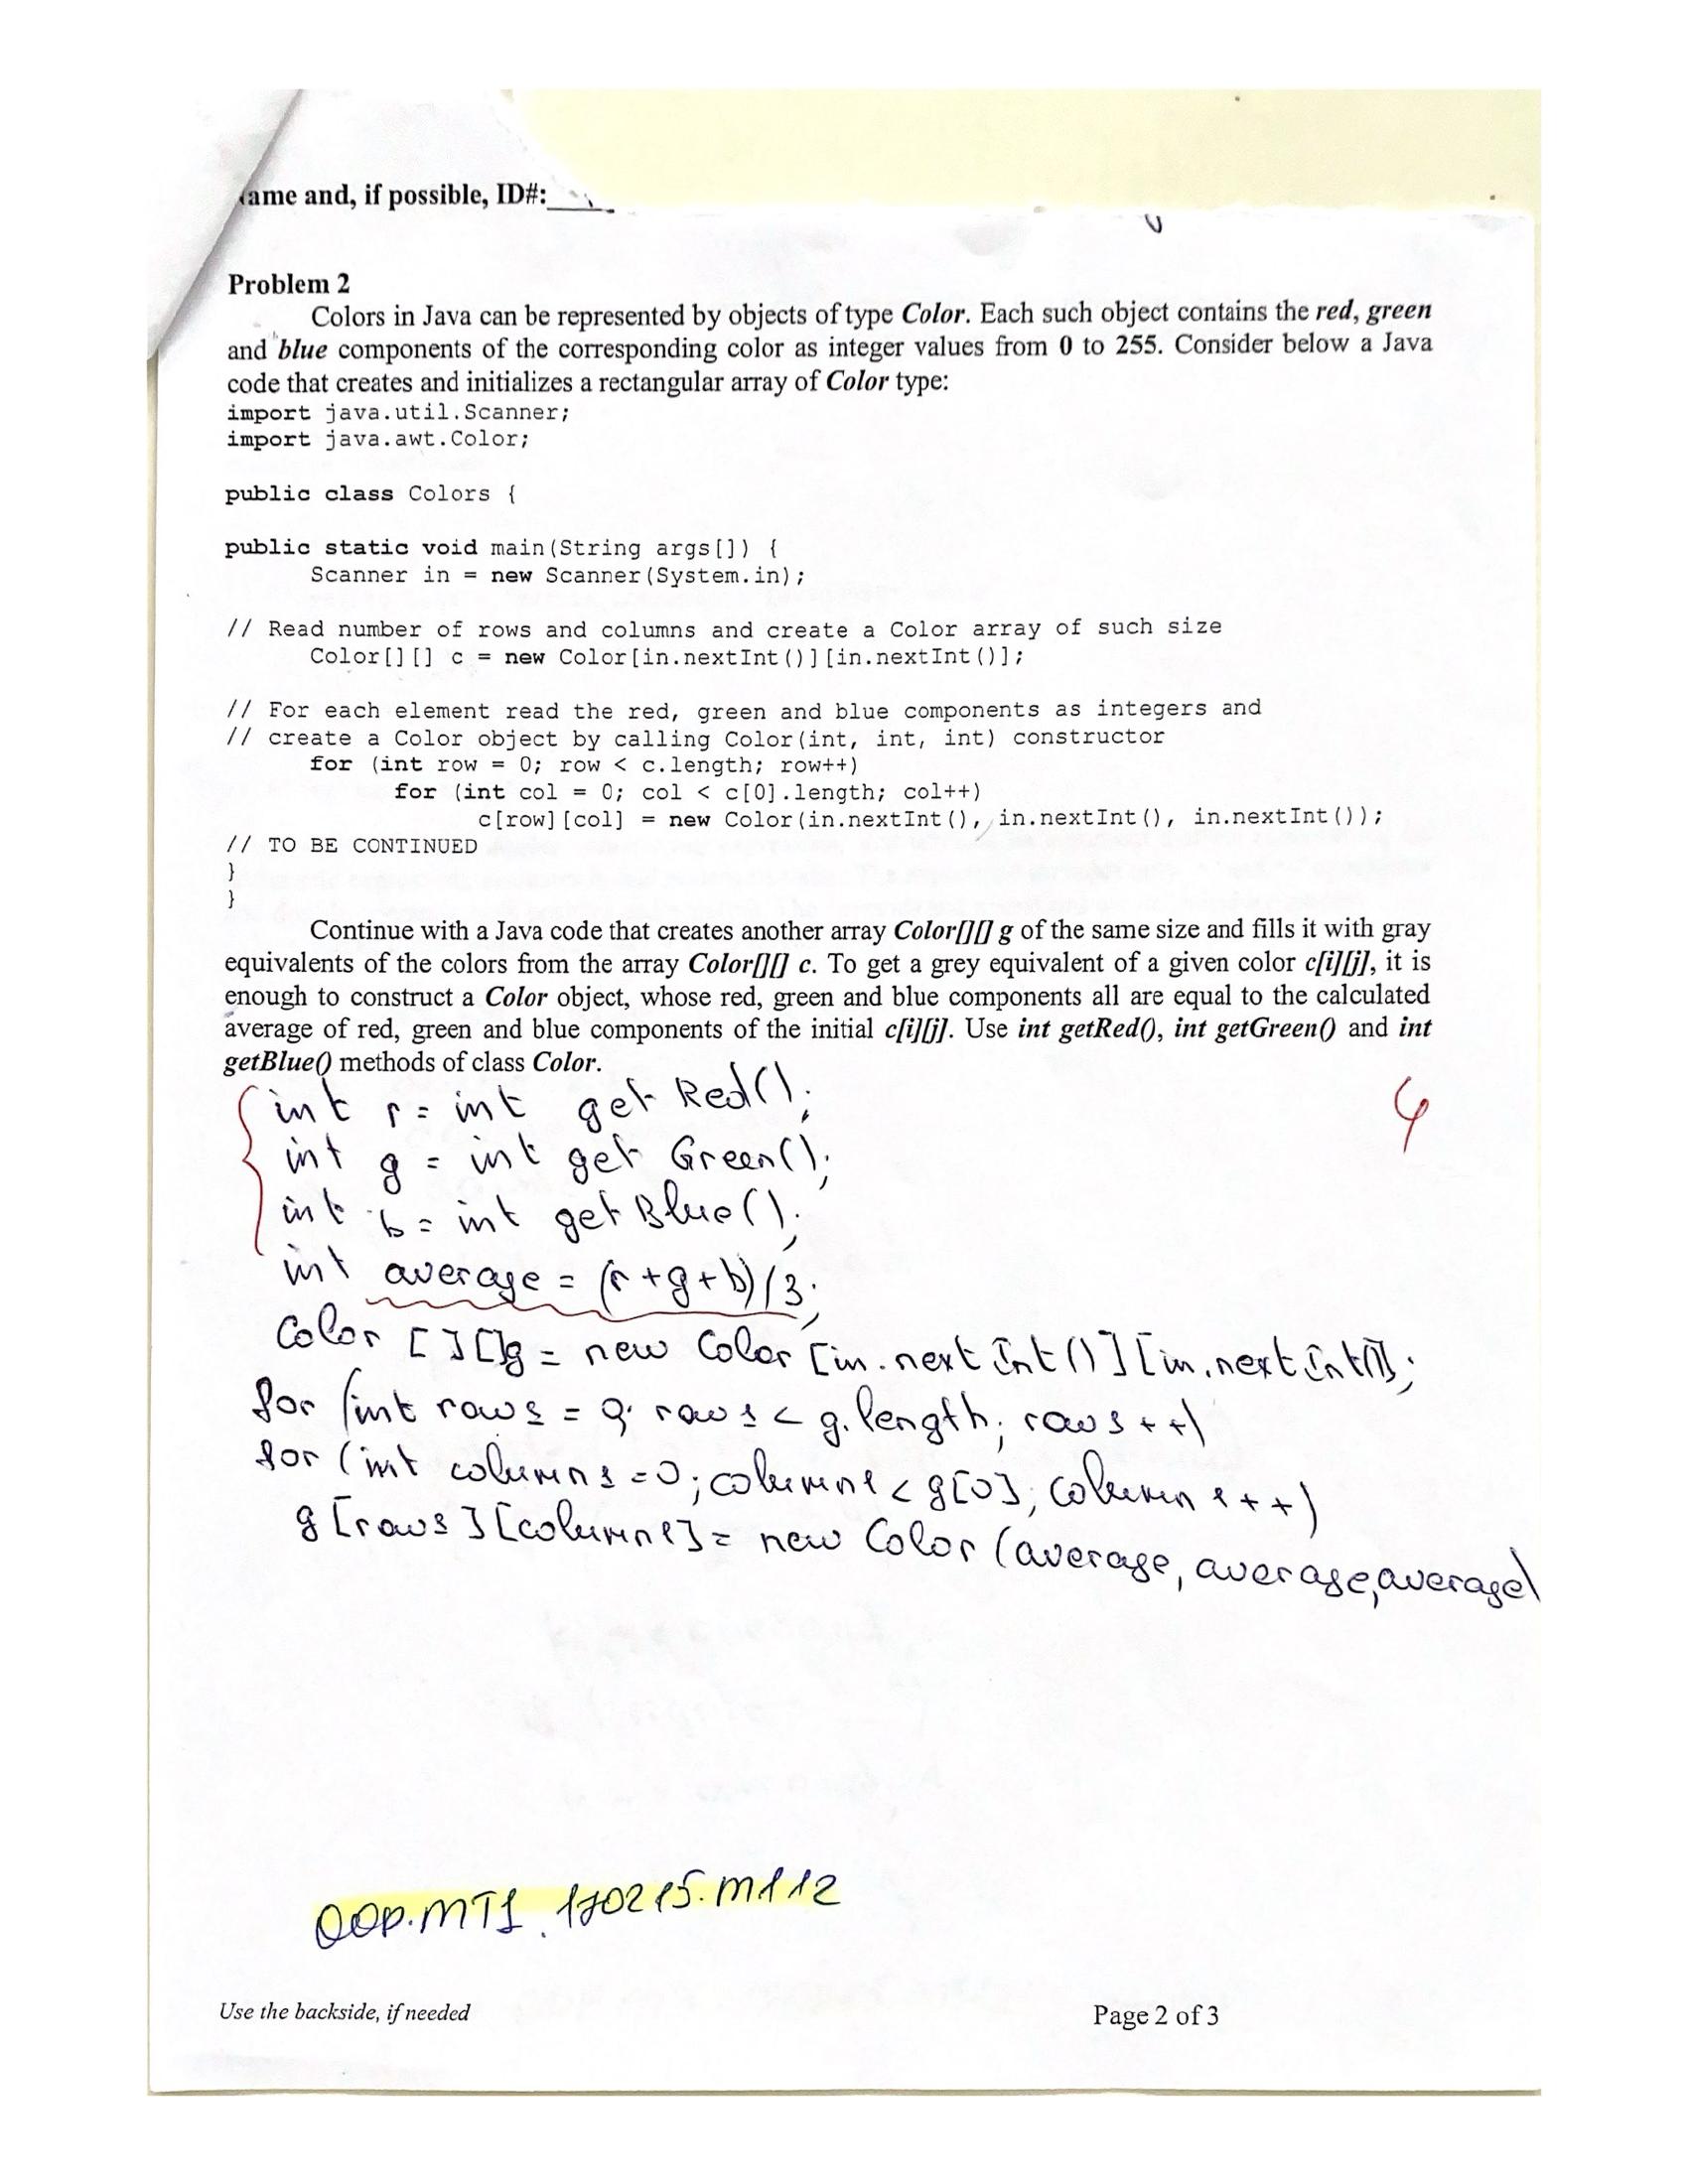 ame and, if possible, ID#:
Problem 2
Colors in Java can be represented by objects of type Color. Each such object contains the red, green
and blue components of the corresponding color as integer values from 0 to 255. Consider below a Java
code that creates and initializes a rectangular array of Color type:
import java.util.Scanner;
import java.awt.Color;
public class Colors {
public static void main(String args[]) {
Scanner in = new Scanner(System.in);
// Read number of rows and columns and create a Color array of such size
Color[][] c = new Color[in.nextInt()][in.nextInt()];
// For each element read the red, green and blue components as integers and
// create a Color object by calling Color(int, int, int) constructor
for (int row = 0; row < c.length; row++)
for (int col = 0; col < c[0].length; col++)
c[row][col] = new Color(in.nextInt(), in.nextInt(), in.nextInt());
// TO BE CONTINUED
}
}
Continue with a Java code that creates another array Color[][] g of the same size and fills it with gray
equivalents of the colors from the array Color[][] c. To get a grey equivalent of a given color c[i][j], it is
enough to construct a Color object, whose red, green and blue components all are equal to the calculated
average of red, green and blue components of the initial c[i][j]. Use int getRed(), int getGreen() and int
getBlue() methods of class Color.
int r = int get Red();
int g = int get Green();
int b = int get Blue();
int average = (r+g+b)/3;
Color [][]g = new Color [in.next Int()][in.nextInt()];
for (int rows = 0; rows < g.length; rows++)
for (int columns =0; columns < g[0]; columns++)
g[rows][columns] = new Color (average, average, average)
OOP.MT1.170215.M112
Use the backside, if needed
Page 2 of 3